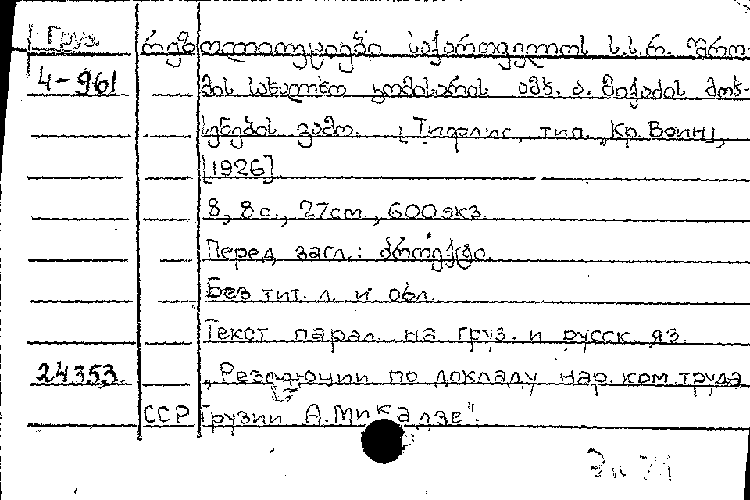 Груз. რეზოლიუციები საქართველოს ს.ს.რ. შრო-
4-961 მის სახალხო კომისარის ამხ. ა. მიქაძის მოხ-
სენების გამო. [Тифлис, тип. „Кр. Воин“],
[1926].
8, 8 с., 27 cm, 600 экз.
Перед загл.: პროექტი.
Без тит. л. и обл.
Текст парал. на груз. и русск. яз.
24353. „Резолюции по докладу нар. ком. труда
ССР Грузии А. Микадзе".